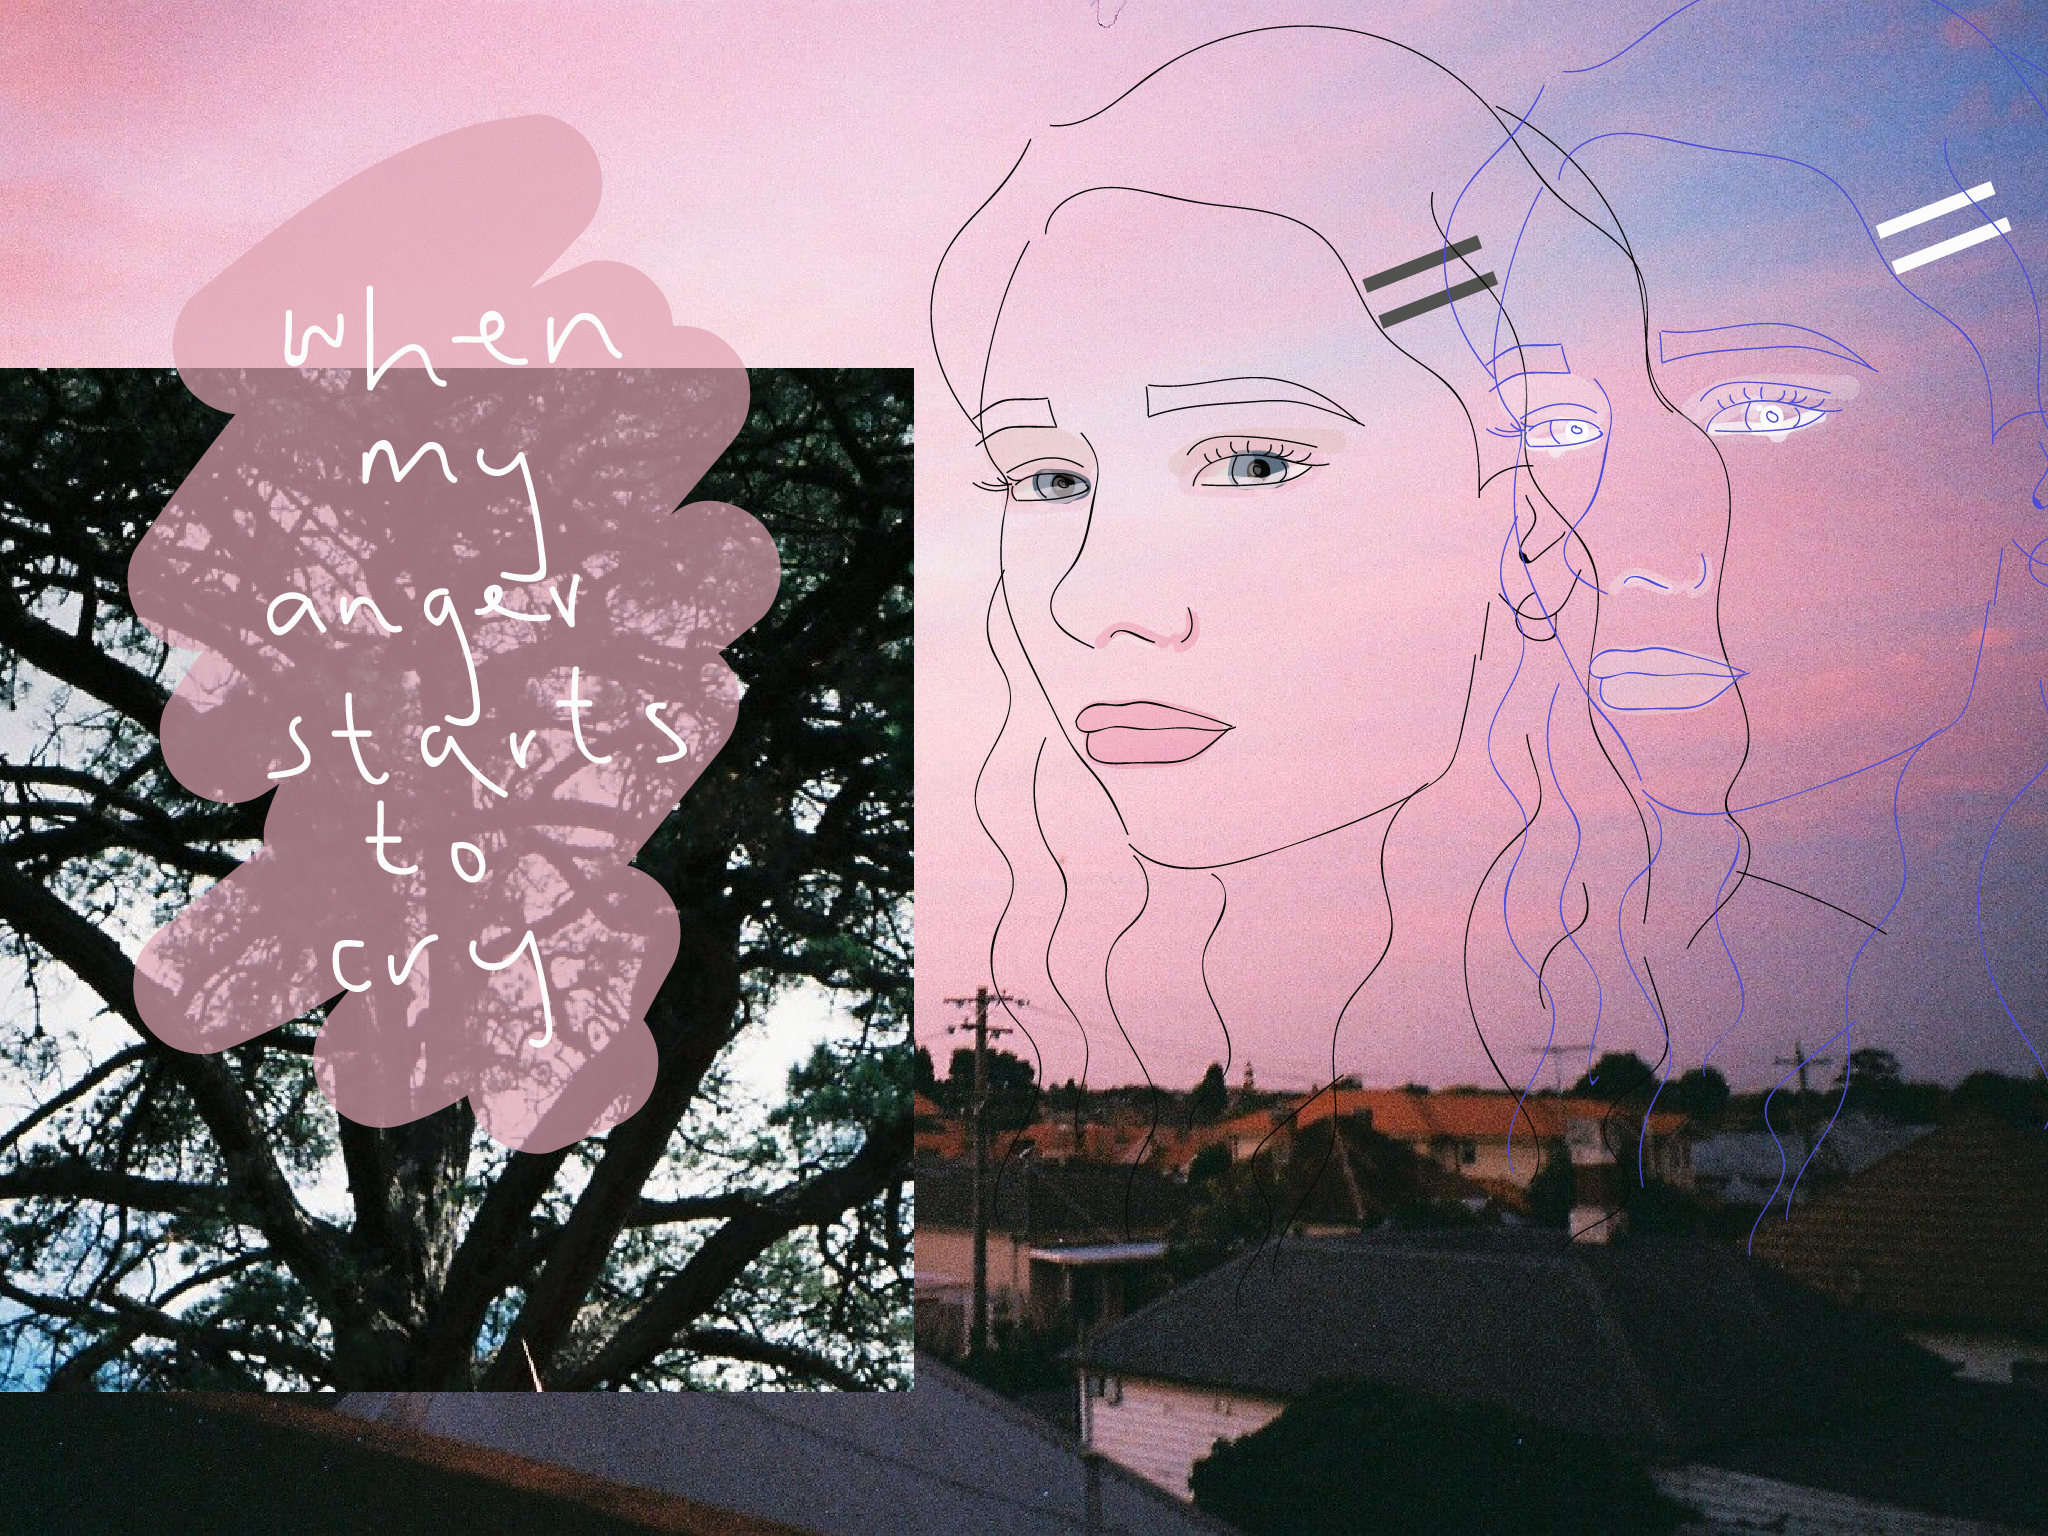 when
my
anger
starts
to
cry